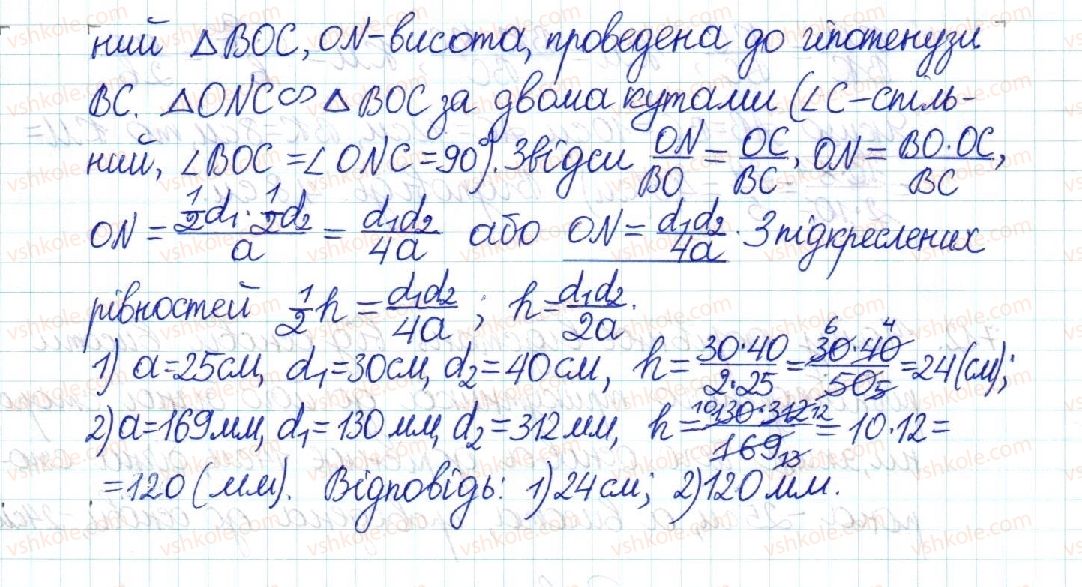 ний △BOC, ON-висота, проведена до гіпотенузи
BC. △ONC ∾ △BOC за двома кутами (∠C-спіль-
ний, ∠BOC = ∠ONC = 90°). Звідси ON/BO = OC/BC, ON = BO·OC/BC,
ON = (1/2 d₁ · 1/2 d₂)/a = d₁d₂/4a або ON = d₁d₂/4a. З підкреслених
рівностей 1/2 h = d₁d₂/4a; h = d₁d₂/2a.
1) a=25см, d₁=30см, d₂=40см, h = 30·40/2·25 = 30·40/50 = 24 (см);
2) a=169мм, d₁=130мм, d₂=312мм, h = 130·312/169 = 10·12 =
=120 (мм). Відповідь: 1) 24см; 2) 120мм.